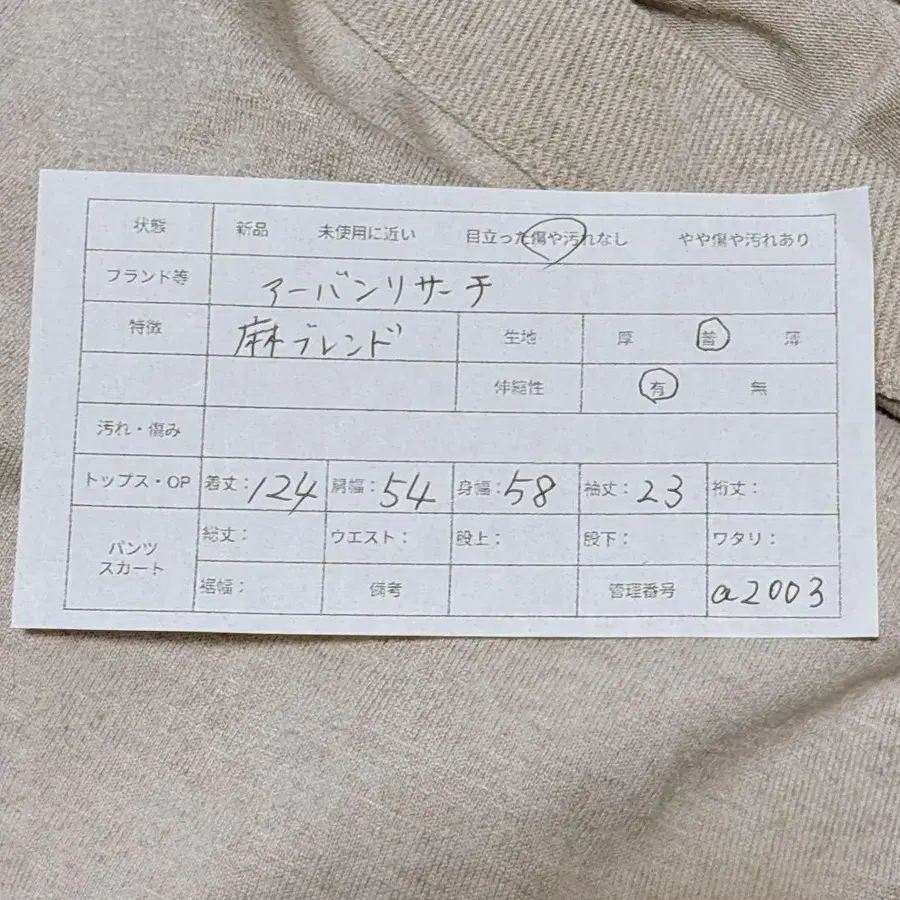 状態 新品 未使用に近い 目立った傷や汚れなし やや傷や汚れあり
ブランド等 アーバンリサーチ
特徴 麻ブレンド 生地 厚 普 薄
伸縮性 有 無
汚れ・傷み
トップス・OP 着丈：124 肩幅：54 身幅：58 袖丈：23 裄丈：
パンツ スカート 総丈： ウエスト： 股上：股下： ワタリ：
裾幅： 備考 管理番号 a2003